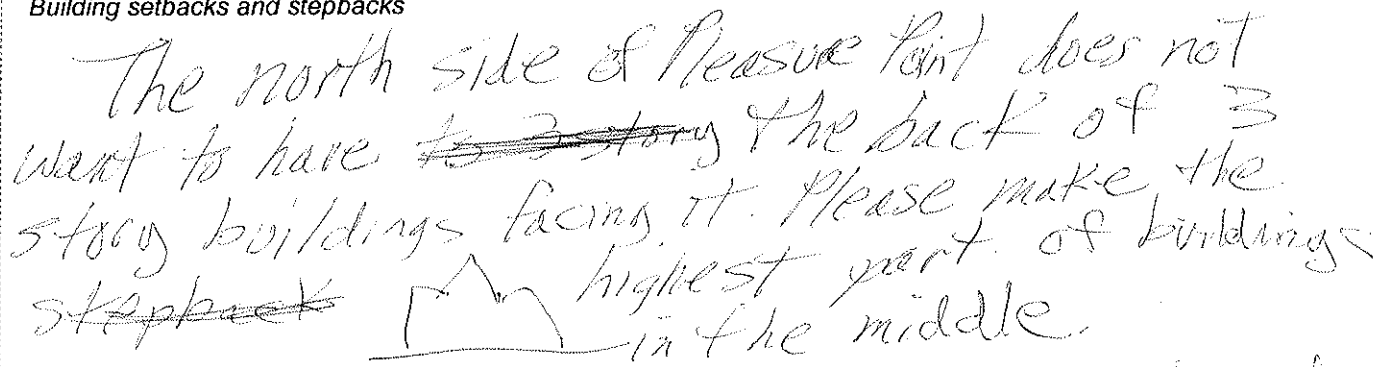 Building setbacks and stepbacks
The north side of Pleasure Point does not
want to have to 3 story the back of 3
story buildings facing it. Please make the
stepback highest part of buildings
in the middle.